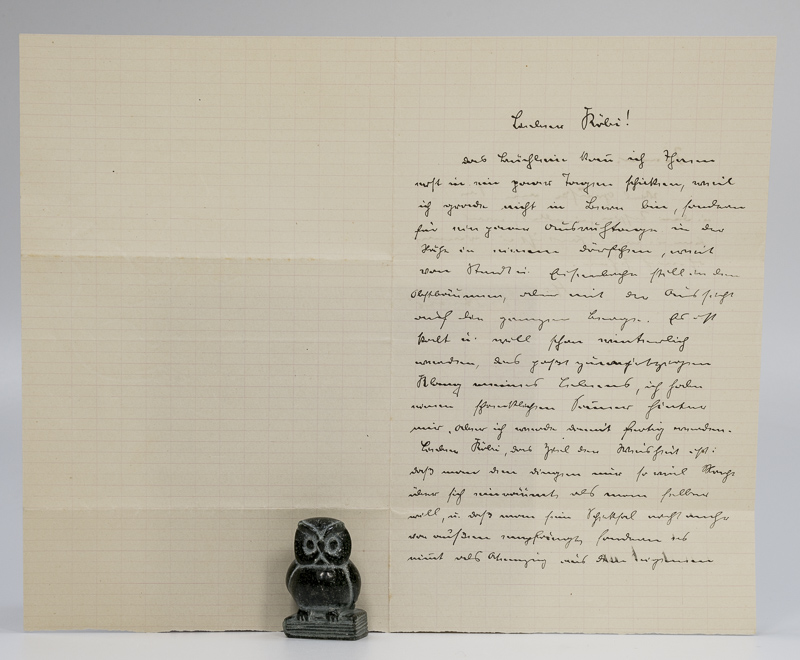 Lieber Köbi!
das Büchlein kann ich Ihnen
erst in ein paar Tagen schicken, weil
ich grade nicht in Bern bin, sondern
für ein paar Ausruhtage in der
Nähe in einem Dörfchen, weit
von Stadt u. Eisenbahn still in den
Obstbäumen, aber mit der Aussicht
auf die ganzen Berge. Es ist
kalt u. will schon winterlich
werden, das passt zum jetzigen
Klang meines Lebens, ich habe
einen schrecklichen Sommer hinter
mir, aber ich werde damit fertig werden.
Lieber Köbi, das Ziel der Weisheit ist:
daß man den Dingen nur so viel Macht
über sich einräumt, als man selber
will, u. daß man sein Schicksal nicht mehr
von außen empfängt, sondern es
nimt als aus dem eigenen